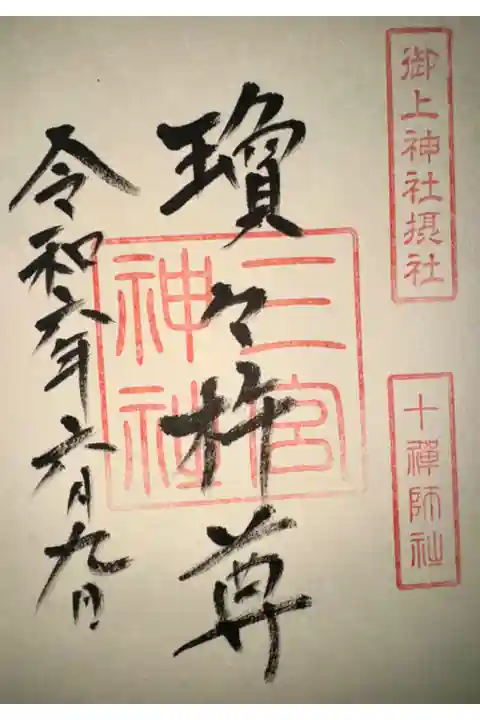 御上神社摂社
十禪師社
瓊々杵尊
三宮
神社
令和六年六月九日